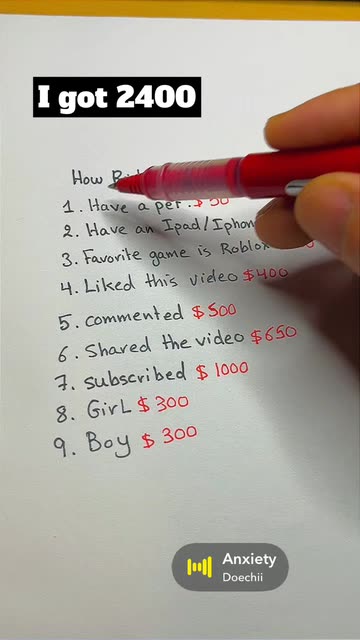 I got 2400
How
1. Have a pet. $50
2. Have an Ipad/Iphon
3. Favorite game is Roblox
4. Liked this video $400
5. commented $500
6. Shared the video $650
7. subscribed $1000
8. GirL $300
9. Boy $300
Anxiety
Doechii